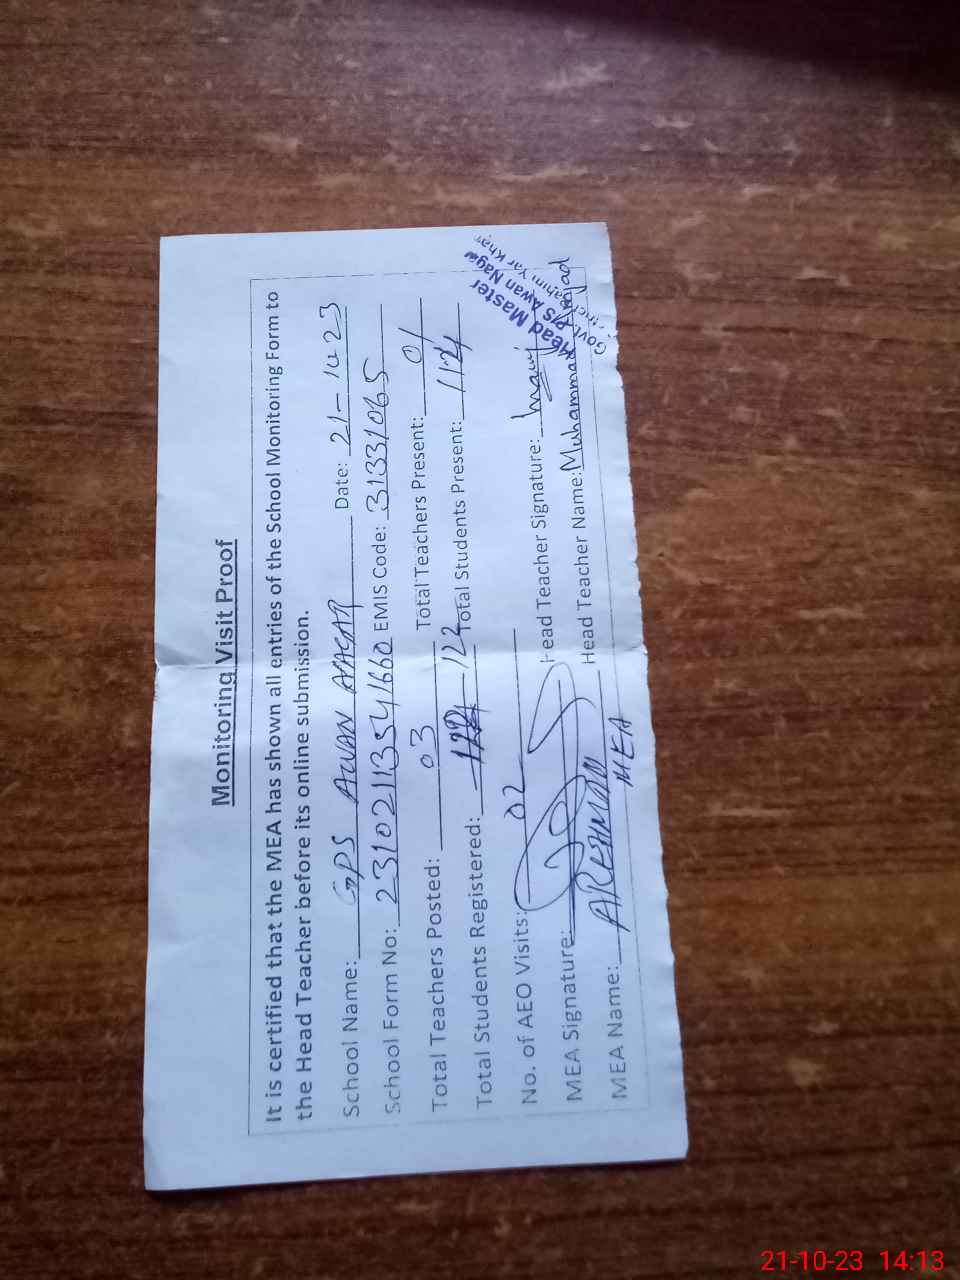 Monitoring Visit Proof
It is certified that the MEA has shown all entries of the School Monitoring Form to
the Head Teacher before its online submission.
School Name: GPS AWAN NAGAR Date: 21-10-23
School Form No: 23102113541660 EMIS Code: 31331065
Total Teachers Posted: 03 Total Teachers Present: 01
Total Students Registered: 122 Total Students Present: 114
No. of AEO Visits: 02
MEA Signature: Head Teacher Signature:
MEA Name: A REHMAN Head Teacher Name: Muhammad Amjad
MEA
Head Master
Govt. P/S Awan Nagar
Rahim Yar Khan
21-10-23 14:13